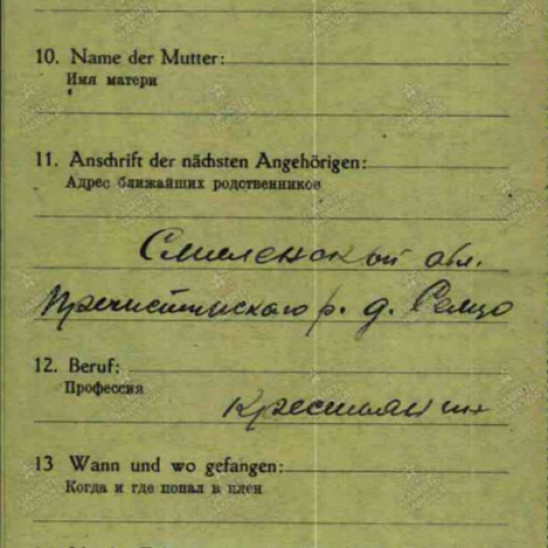 10. Name der Mutter:
Имя матери
11. Anschrift der nächsten Angehörigen:
Адрес ближайших родственников
Смоленской обл.
Пречистинского р. д. Сельцо
12. Beruf:
Профессия
крестьянин
13 Wann und wo gefangen:
Когда и где попал в плен